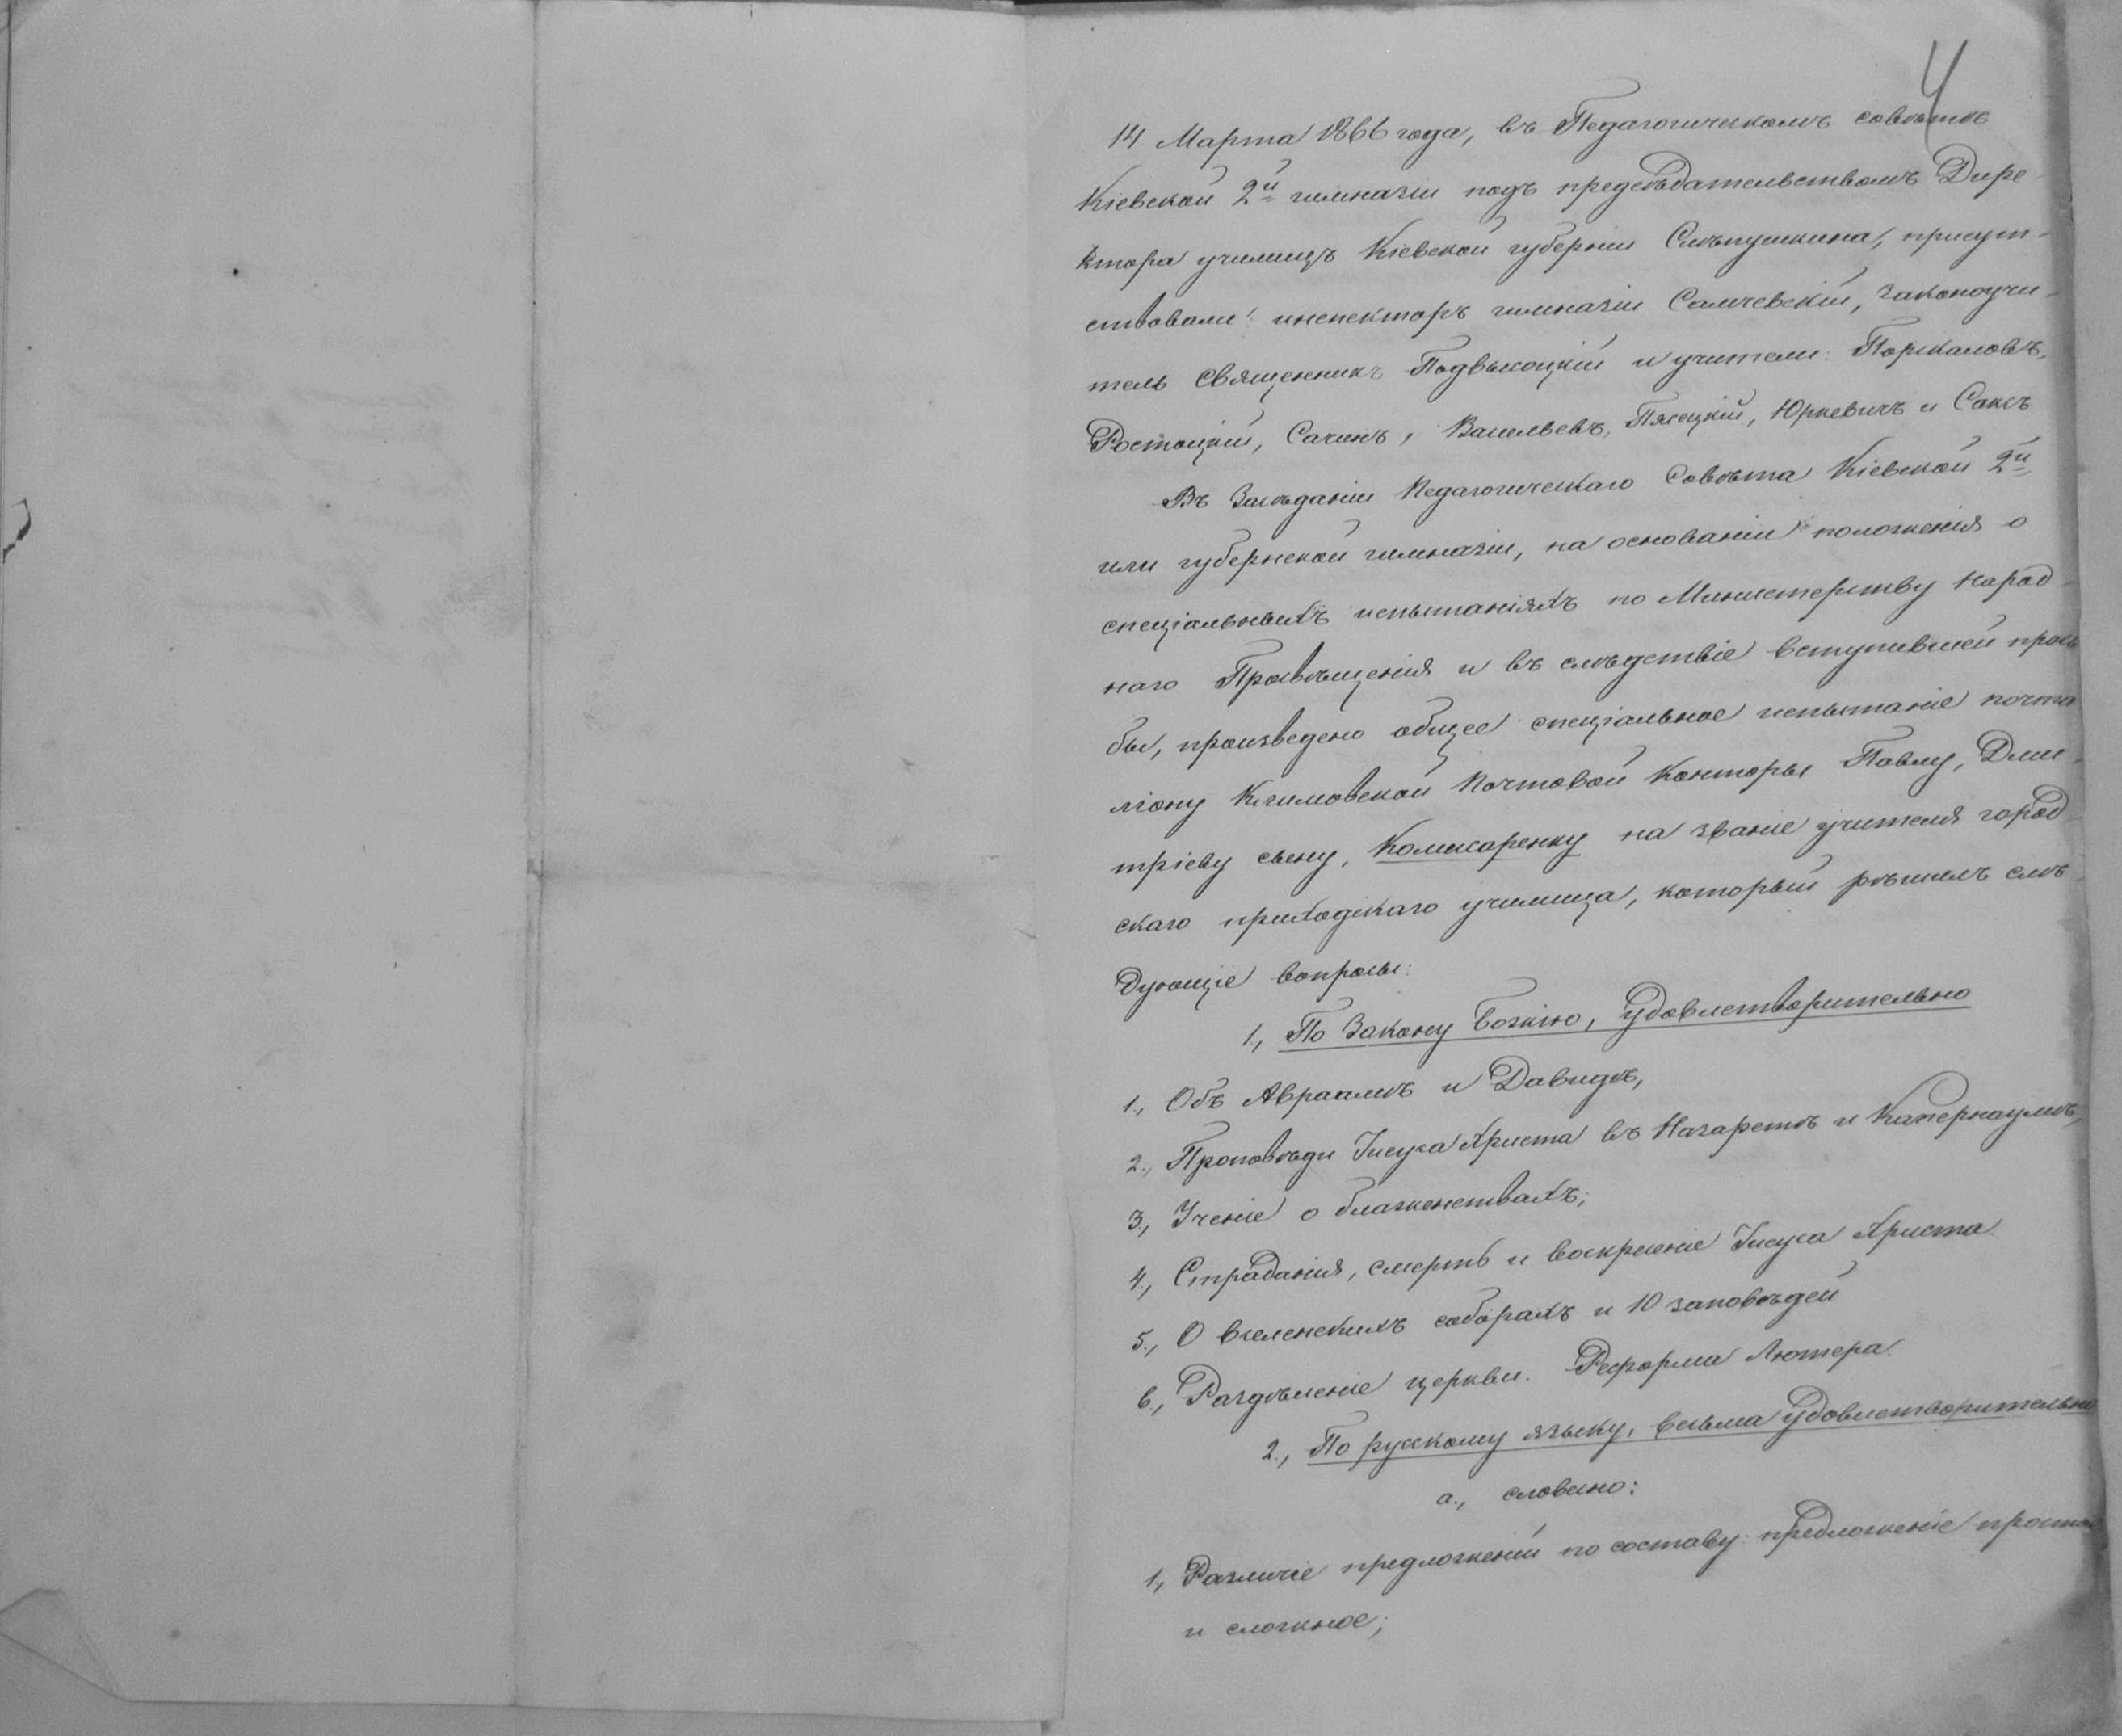 4
14 Марта 1866 года, въ Педагогическомъ совѣтѣ
Кіевской 2й гимназіи подъ предсѣдательствомъ Дире-
ктора училищъ Кіевской губерніи Слѣпушкина, присут-
ствовали: инспекторъ гимназіи Самчевскій, законоучи-
тель Священникъ Подвысоцкій и учители:
Ростоцкій, Сачинъ, Васильевъ, Пясецкій, Юркевичъ и Саксъ
Въ Засѣданіи Педагогическаго Совѣта Кіевской 2й
или губернской гимназіи, на основаніи положенія о
спеціальныхъ испытаніяхъ по Министерству Народ-
наго Просвѣщенія и въ слѣдствіе вступившей прось
бы, произведено общее спеціальное испытаніе почта
ліону Почтовой Конторы Павлу, Дми-
тріеву сыну, Комисаренку на званіе учителя город-
скаго приходскаго училища, который рѣшилъ слѣ-
дующіе вопросы:
1., По Закону Божію, удовлетворительно
1., Объ Авраамѣ и Давидѣ,
2., Проповѣди Іисуса Христа въ Назаретѣ и Капернаумѣ,
3., Ученіе о блаженствахъ;
4., Страданія, смерть и воскресеніе Іисуса Христа.
5., О вселенскихъ соборахъ и 10 заповѣдей
6., Раздѣленіе церкви. Реформа Лютера.
2., По русскому языку, весьма удовлетворительно
а., словесно:
1., Различіе предложеній по составу: предложеніе простое
и сложное;